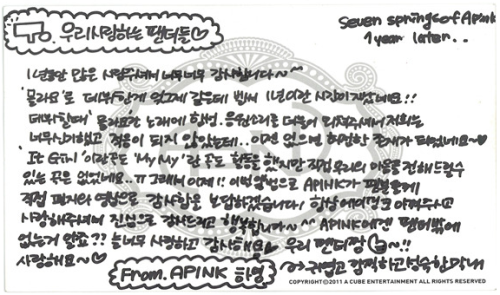 To. 우리사랑하는 팬더들♡
Seven springs of Apink
1 year later..
1년동안 많은 사랑주셔서 너무너무 감사합니다~^^
'몰라요'로 데뷔한게 엊그제 같은데 벌써 1년이란 시간이 지났네요!!
데뷔할때 '몰라요'란 노래에 함성. 응원소리를 더불어 외쳐주셔서 저희는
너무신기했고 적응이 되지 않았는데.. 이젠 없으면 허전한 존재가 되었네요~♡
It Girl' 이란곡도 'My My'란 곡도 활동을 했지만 직접 우리의 마음을 전해드릴수
있는 곡은 없었네요.. ㅠ 그래서 이제!! 이번 앨범으로 APINK가 팬분들께
직접 편지와 영상으로 감사함을 보답하겠습니다. 항상에이핑크 아껴주시고
사랑해주셔서 진심으로 감사드리고 행복합니다~^^ APINK에겐 팬더밖에
없는거 알죠?? 늘 너무 사랑하고 감사해요♡ 우리 팬더짱~!!
사랑해요~♡
From. APINK 하영
→귀엽고 깜찍하고성숙한막내
COPYRIGHTⓒ2011 A CUBE ENTERTAINMENT ALL RIGHTS RESERVED